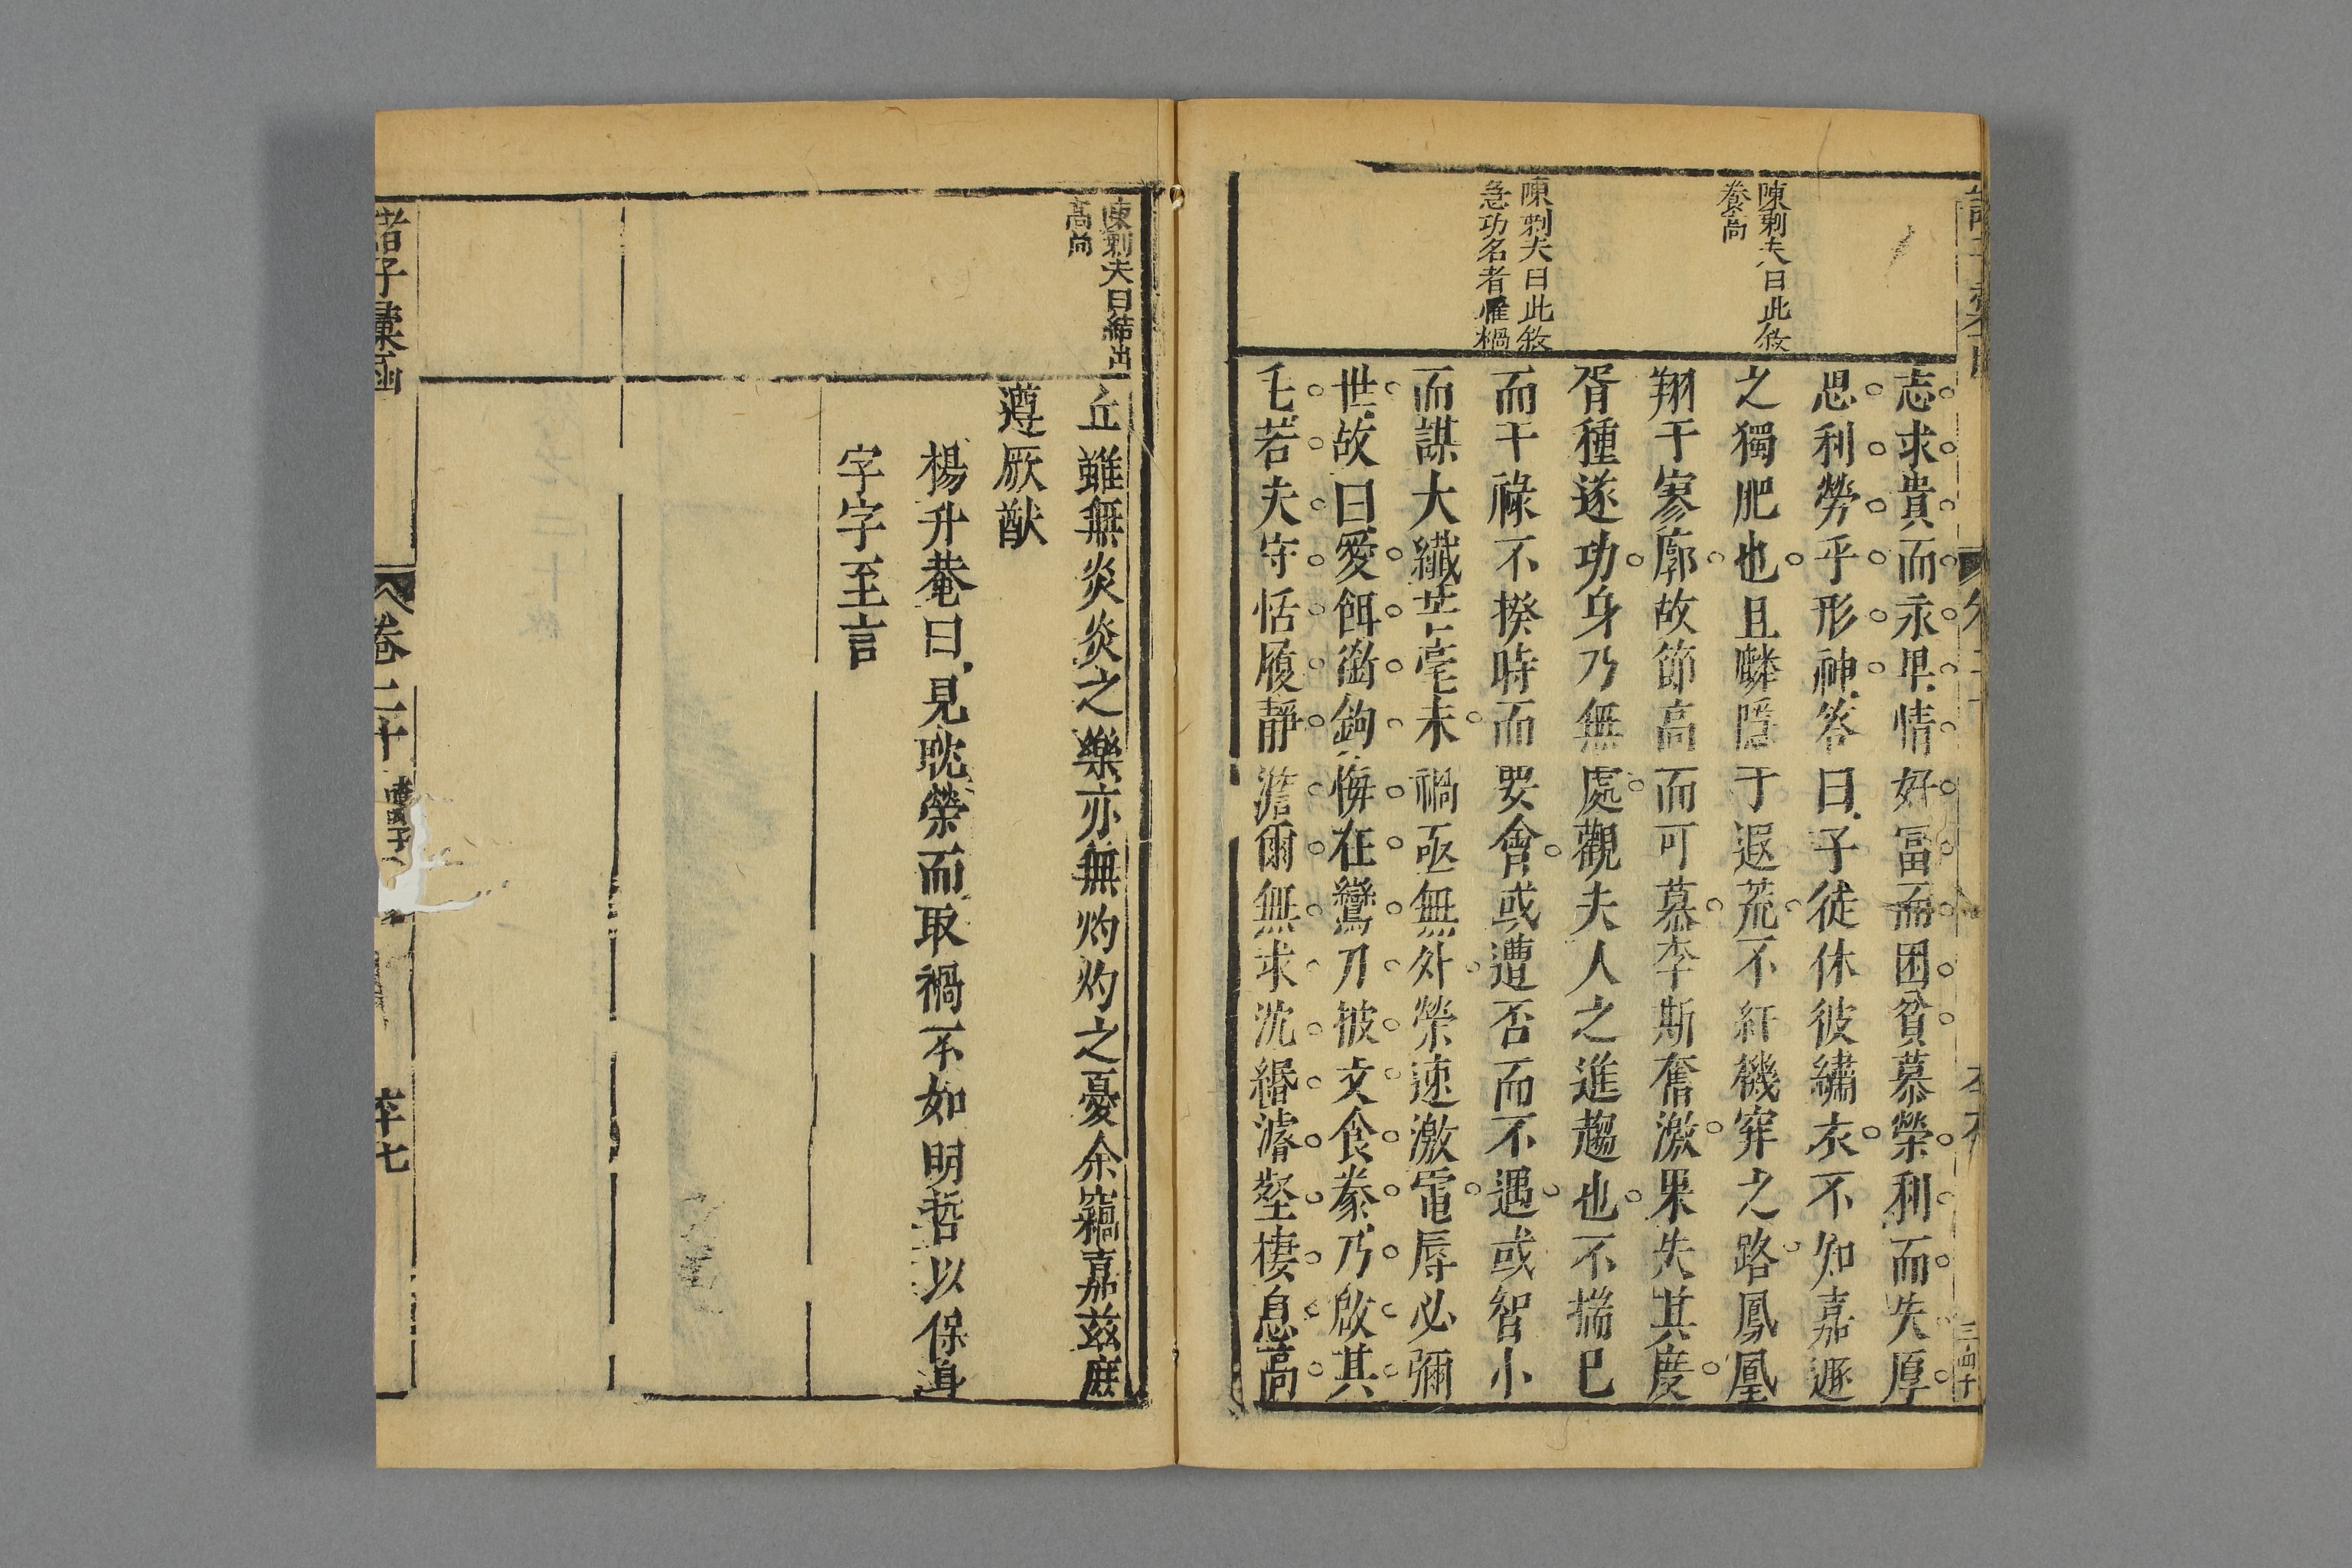 陳剿夫曰此敘
養高
陳剿夫曰此敘
急功名者罹禍
志求貴而永卑情好冨而困貧慕榮利而失厚
思利勞乎形神答曰子徒休彼繡衣不知嘉遯
之獨肥也且麟隱于遐荒不紆機穽之路鳳凰
翔于寥廓故節高而可慕李斯奮激果失其度
胥種遂功身乃無處觀夫人之進趨也不揣巳
而干祿不揆時而要會或遭否而不遇或智小
而謀大纖芒毫末禍亟無外榮速激電辱必彌
世故曰愛餌銜鉤悔在鸞刀披文食豢乃啟其
毛若夫守恬履靜澹爾無求沈緡濬壑棲息高
陳剿夫曰結出
高尚
丘雖無炎炎之樂亦無灼灼之憂余竊嘉茲庶
遵厥猷
楊升菴曰見耽榮而取禍不如明哲以保身
字字至言
諸子彙函
卷二十